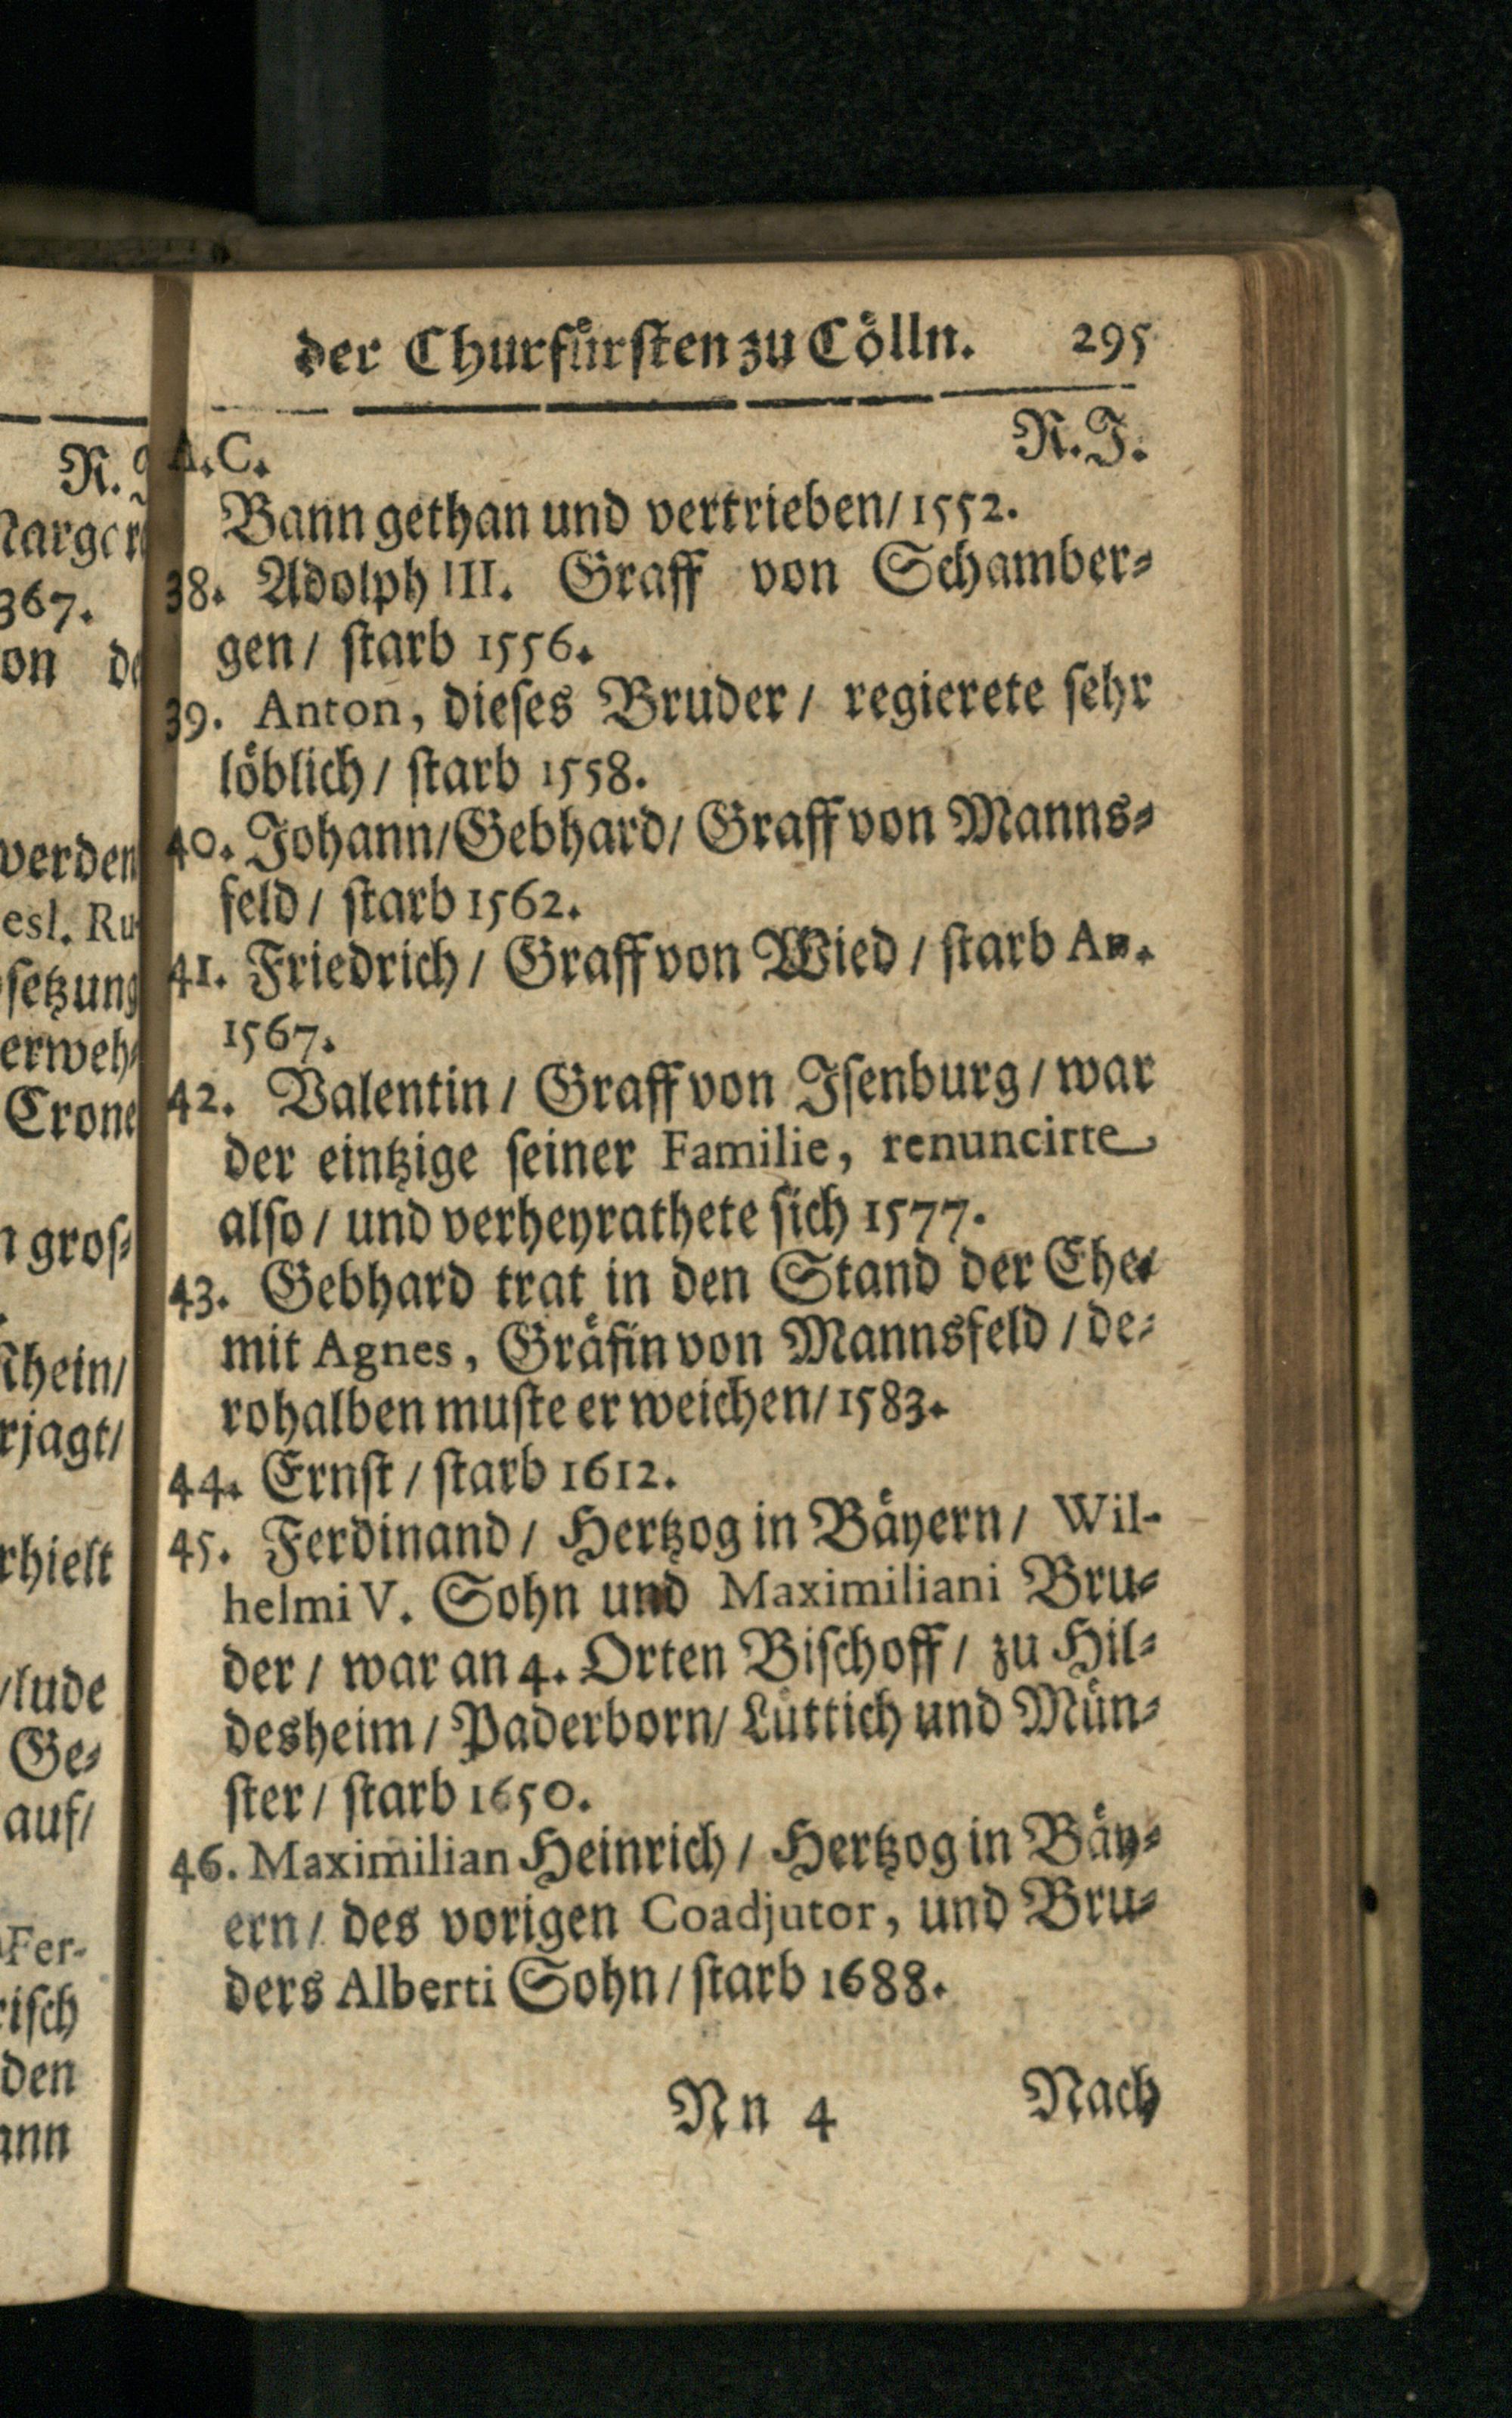 der Churfürsten zu Cölln. 295
A.C. R.J.
Bann gethan und vertrieben/ 1552.
38. Adolph III. Graff von Schamber-
gen/ starb 1556.
39. Anton, dieses Bruder/ regierete sehr
löblich/ starb 1558.
40. Johann/Gebhard/ Graff von Manns-
feld/ starb 1562.
41. Friedrich/ Graff von Wied/ starb An.
1567.
42. Valentin/ Graff von Isenburg/ war
der eintzige seiner Familie, renuncirte
also/ und verheyrathete sich 1577.
43. Gebhard trat in den Stand der Ehe/
mit Agnes, Gräfin von Mannsfeld/ de-
rohalben muste er weichen/ 1583.
44. Ernst/ starb 1612.
45. Ferdinand/ Hertzog in Bäyern/ Wil-
helmi V. Sohn und Maximiliani Bru-
der/ war an 4. Orten Bischoff/ zu Hil-
desheim/ Paderborn/ Lüttich und Mün-
ster/ starb 1650.
46. Maximilian Heinrich/ Hertzog in Bäy-
ern/ des vorigen Coadjutor, und Bru-
ders Alberti Sohn/ starb 1688.
Nn 4 Nach